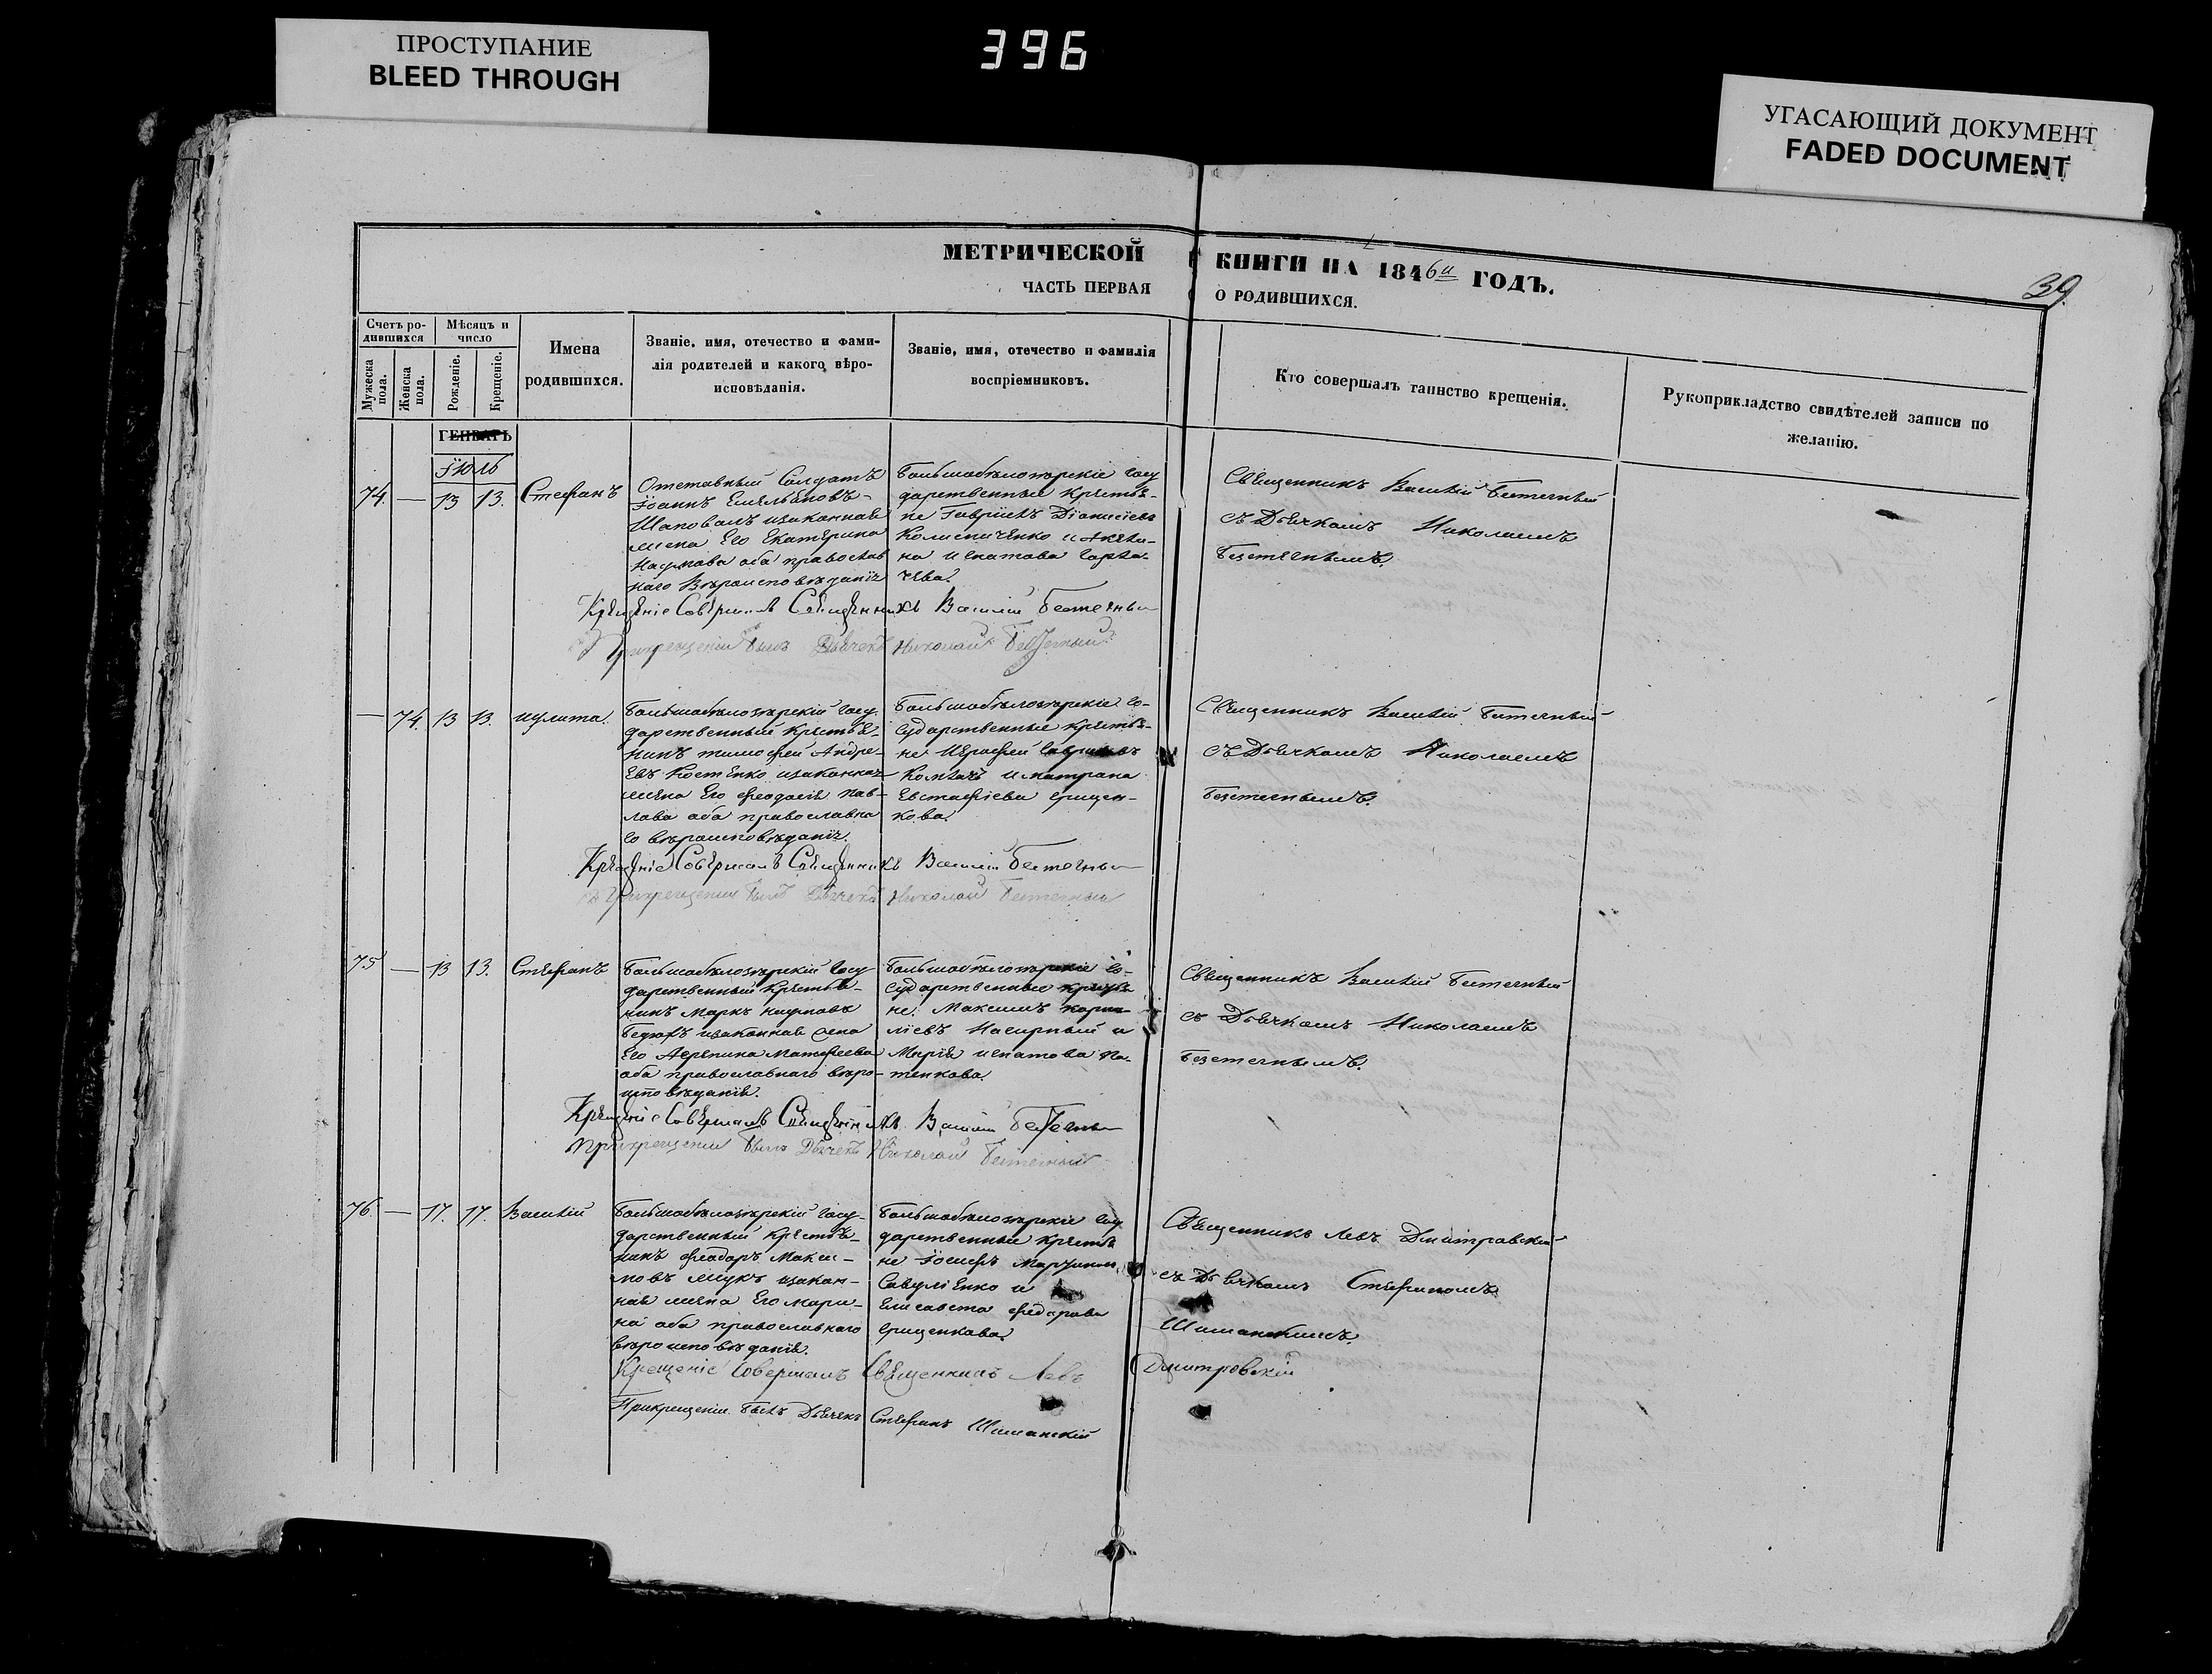 ПРОСТУПАНИЕ
BLEED THROUGH
396
УГАСАЮЩИЙ ДОКУМЕНТ
FADED DOCUMENT
МЕТРИЧЕСКОЙ КНИГИ НА 1846й ГОДЪ.
39.
ЧАСТЬ ПЕРВАЯ О РОДИВШИХСЯ.
Счетъ ро-
дившихся
Мужеска пола.
Женска пола.
Мѣсяцъ и
число
Рожденіе.
Крещеніе.
Имена
родившихся.
Званіе, имя, отечество и фами-
лія родителей и какого вѣро-
исповѣданія.
Званіе, имя, отечество и фамилія
воспріемниковъ.
Кто совершалъ таинство крещенія.
Рукоприкладство свидѣтелей записи по
желанію.
ГЕНВАРЬ
Іюль
74. — 13 13. Стефанъ
Отставный Солдатъ
Іоаннъ Емельяновъ
Шаповалъ изаконная
жена Его Екатерина
Наумова оба православ
наго Вѣроисповѣданія
Большабѣлозѣрскіе госу
дарственные Крестья-
не Гавріилъ Діонисіевъ
Колисниченко и Акили-
на Игнатова Горба-
чева.
Священникъ Василій Безтечный
съ Дьячкомъ Николаемъ
Безтечнымъ.
Крещеніе Совершилъ Священникъ Василій Безтечный
Прикрещеніи былъ Дьячекъ Николай Безтечный
— 74. 13 13. Иулита.
Большабѣлозѣрскій Госу
дарственный Крестья-
нинъ Тимофей Андре-
евъ Костенко изаконная
жена Его Феодосія Пав-
лова оба православна
го вѣроисповѣданія.
Большабѣлозѣрскіе Го-
сударственные крестья-
не Иерофей Гавриловъ
Компаніицъ
Евстафіева Грицен-
кова.
Священникъ Василій Безтечный
съ Дьячкомъ Николаемъ
Безтечнымъ.
Крещеніе Совершилъ Священникъ Василій Безтечный
Прикрещеніи былъ Дьячекъ Николай Безтечный
75 — 13 13. Стефанъ
Большабѣлозѣрскій Госу
дарственный Крестья-
нинъ Маркъ Наумовъ
изаконная жена
Его Агрепина Матфеева
оба православнаго вѣро-
исповѣданія.
Большабѣлозѣрскіе Го-
сударственные крестья
не: Максимъ Корни-
ліевъ Насирный и
Марія Игнатова
тенкова.
Священникъ Василій Безтечный
съ Дьячкомъ Николаемъ
Безтечнымъ.
Крещеніе Совершилъ Священникъ Василій Безтечный
Прикрещеніи былъ Дьячекъ Николай Безтечный
76. — 17. 17. Василій
Большабѣлозѣрскій Госу-
дарственный Крестья-
нинъ Феодоръ Макси-
мовъ изакон-
ная жена Его Мари-
на оба православнаго
вѣроисповѣданія.
Большабѣлозѣрскіе Госу
дарственные Крестья
не Іосифъ
Савуленко и
Елисавета Федорова
Гриценкова.
Священникъ Левъ Дмитровскій
съ Дьячкомъ Стефаномъ
Шиманскимъ.
Крещеніе Совершилъ Священникъ Левъ Дмитровскій
Прикрещеніи былъ Дьячекъ Стефанъ Шиманскій